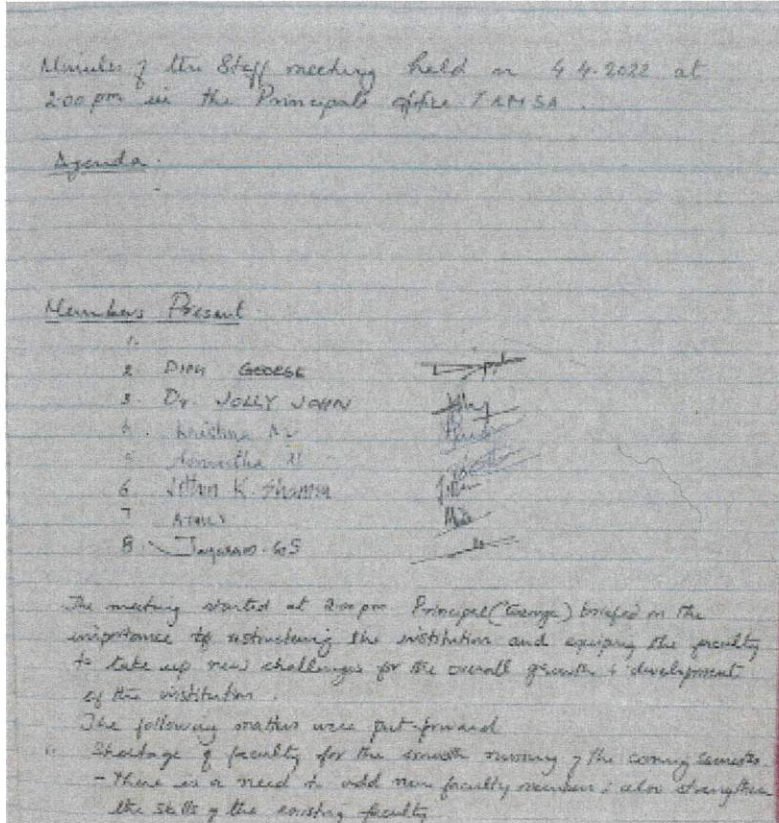 Minutes of the Staff meeting held on 4.4.2022 at
2:00 pm in the Principals office
Agenda.
Members Present
1.
2. GEORGE
3. Dr. JOLLY JOHN
4. Krishna
5.
6. K. Sharma
7
8. Jayaram G S
The meeting started at 2:00 pm Principal (George) briefed on the
importance of restructuring the institution and equiping the faculty
to take up new challenges for the overall growth & development
of the institution.
The following matters were put-forward
1. Shortage of faculty for the smooth running of the coming semester
- There is a need to add new faculty members & also strengthen
the skills of the existing faculty